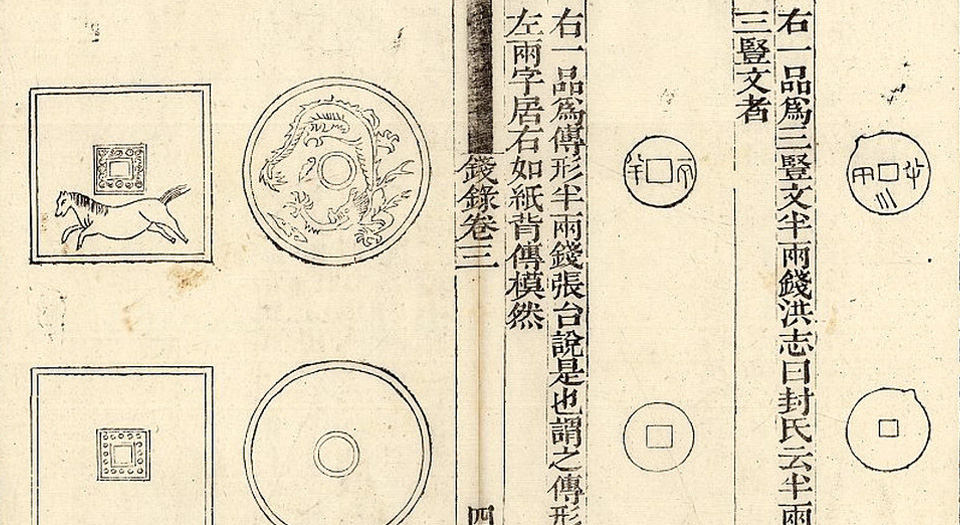 半兩
右一品爲三豎文半兩錢洪志曰封氏云半兩
三豎文者
兩半
右一品爲傳形半兩錢張台說是也謂之傳形
左兩字居右如紙背傳模然
錢錄卷三
四